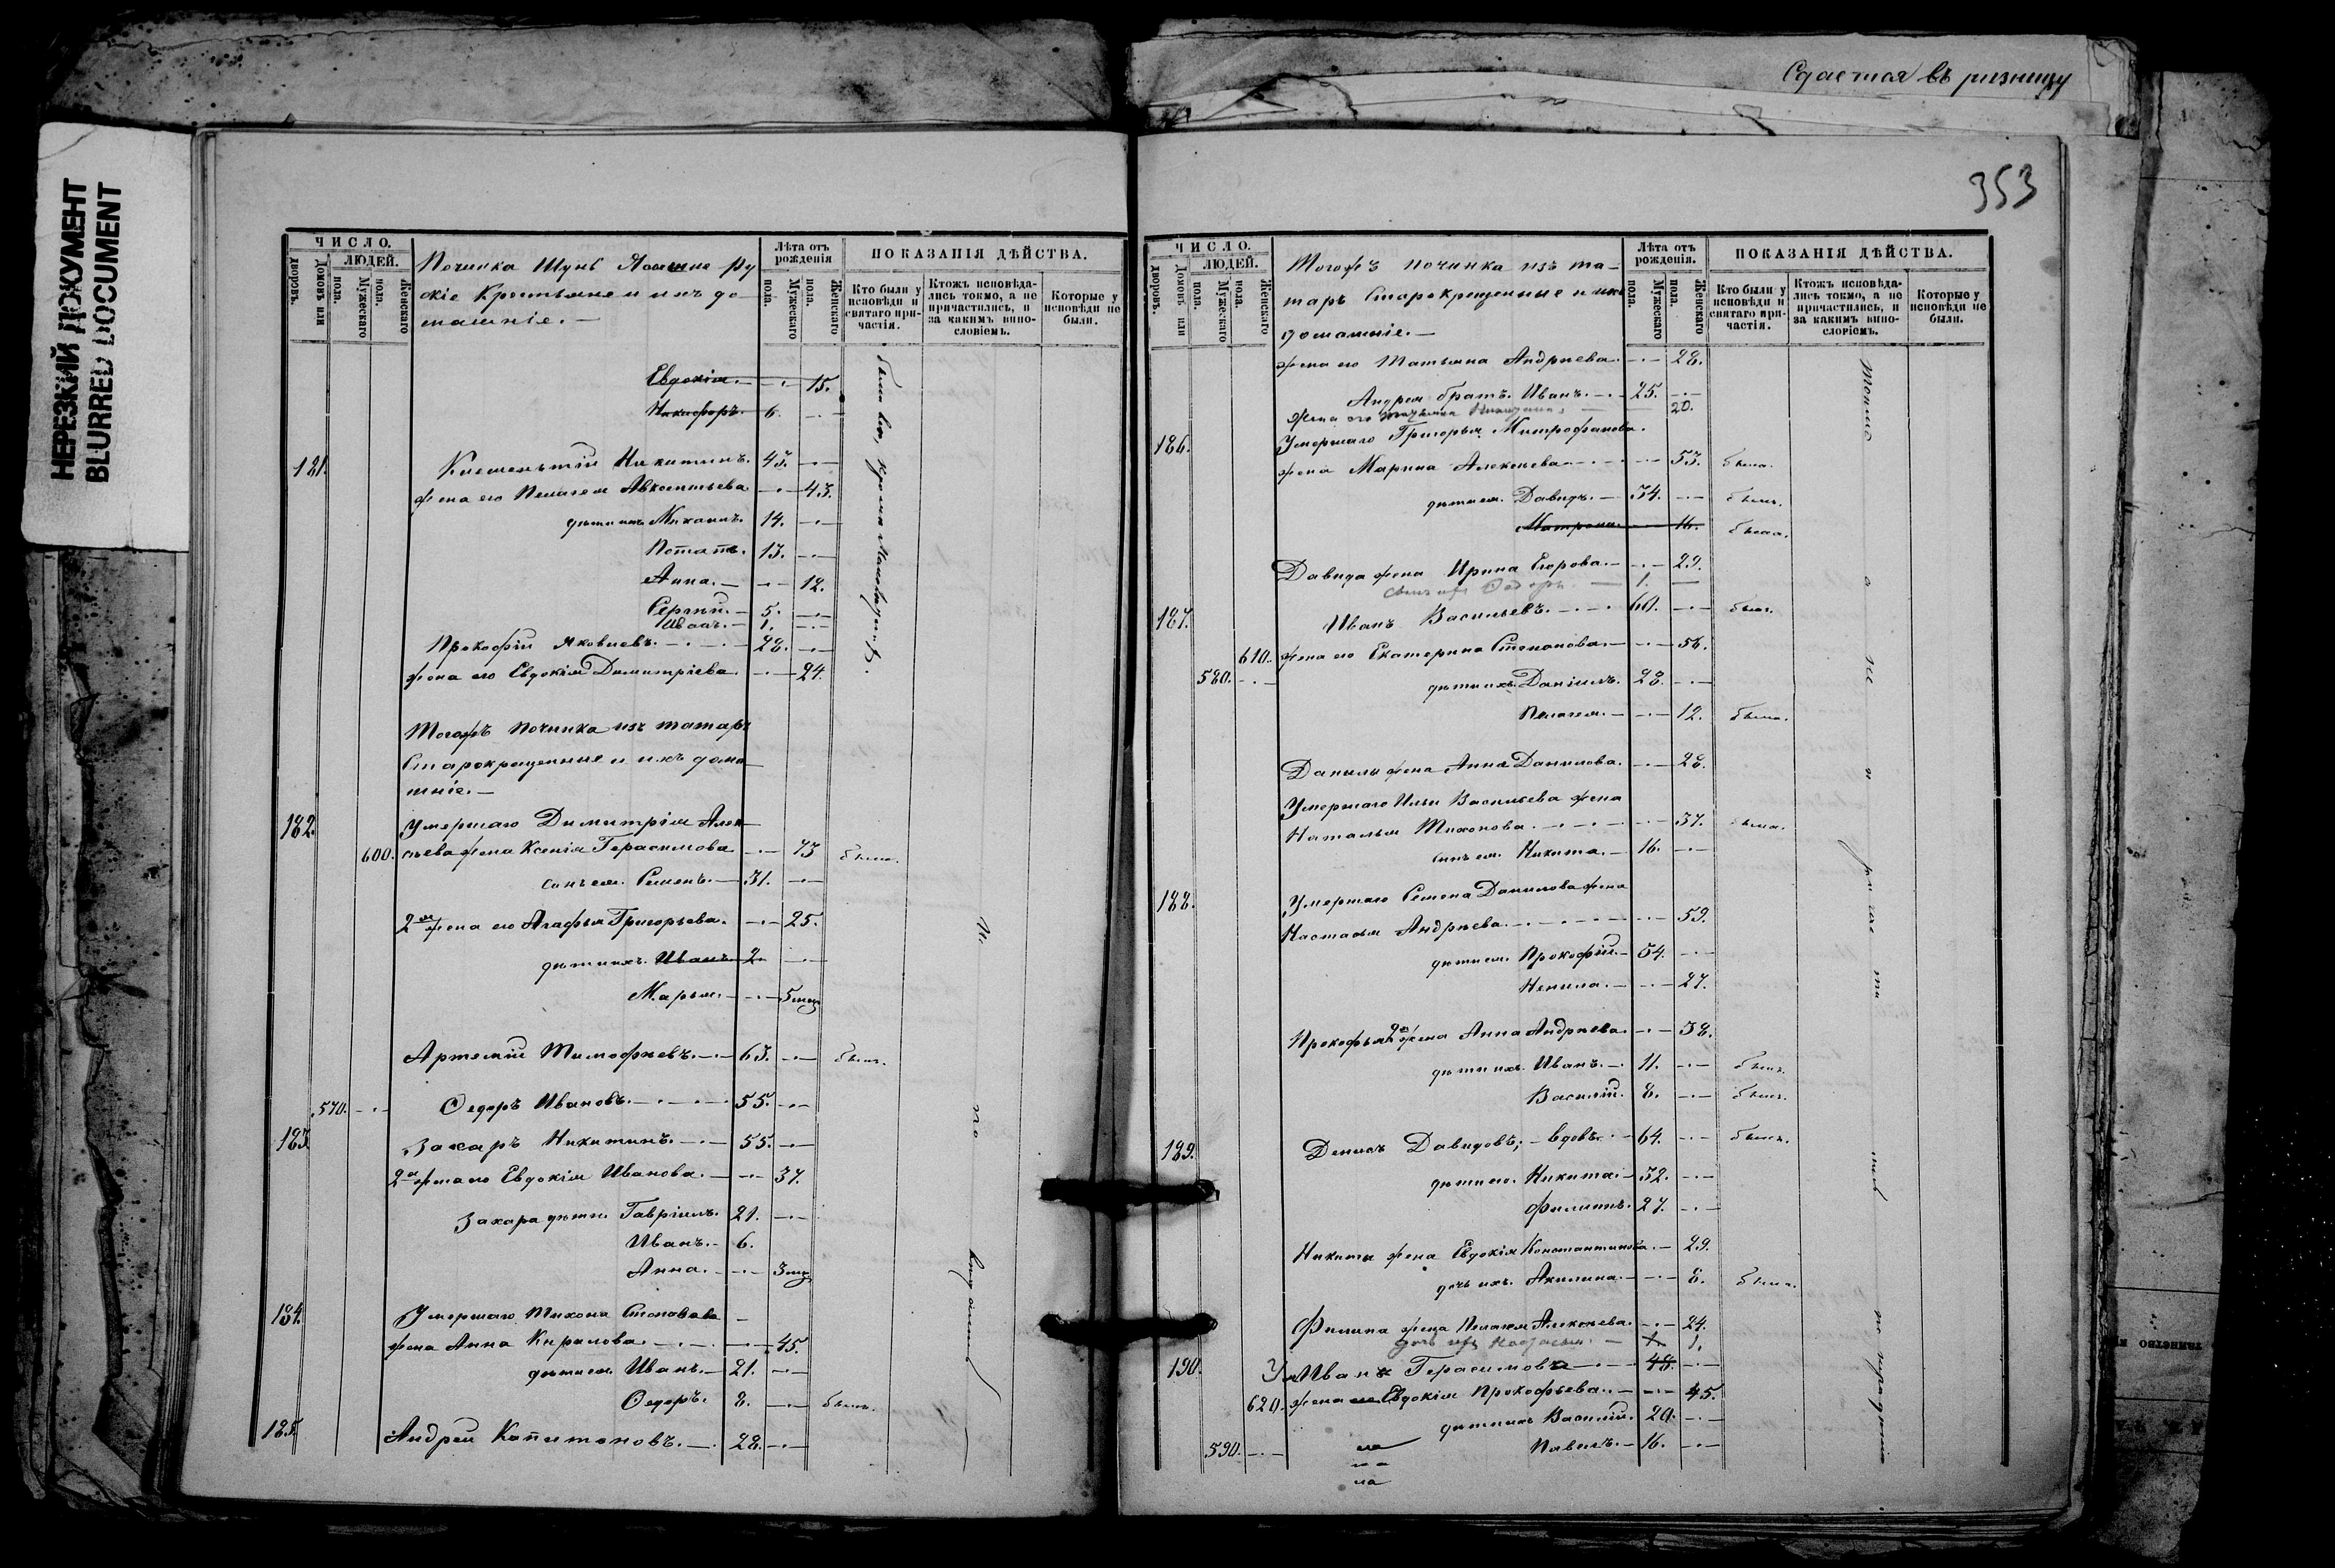 Сдается въ ризницу
НЕРЕЗКИЙ ДОКУМЕНТ
BLURRED DOCUMENT
ЧИСЛО.
ЛЮДЕЙ.
Дворовъ.
Домовъ или
Мужескаго пола.
Женскаго пола.
Починка
Крестьяне и ихъ до-
машніе. —
Лѣта отъ рожденія
Мужескаго пола.
Женскаго пола.
ПОКАЗАНІЯ ДѢЙСТВА.
Кто были у исповѣди и святаго причастія.
Ктожъ исповѣдались токмо, а не причастились, и за какимъ винословіемъ.
Которые у исповѣди не были.
Евдокія. — 15.
Никифоръ. 6.
181. Климентій Никитинъ. 43.
жена его Пелагея Авксентьева 43.
дѣти ихъ Михаилъ. 14.
Потапъ. 13.
Анна. — 12.
Сергій. — 5.
Иванъ. — 1.
Прокофій Яковлевъ. 28.
жена его Евдокія Димитріева. 24.
Тогожъ починка изъ татаръ
Старокрещенные и ихъ дома-
шніе. —
182. Умершаго Димитрія Алек-
600. сѣева жена Ксенія Герасимова 73 была.
сынъ ея Семенъ. — 31.
2я жена его Агафья Григорьева. 25.
дѣти ихъ. Иванъ 2.
Марья. — 5 мец
Артемій Тимофѣевъ. 63. былъ.
570. Ѳедоръ Ивановъ. 55.
183. Захаръ Никитинъ. 55.
2я жена его Евдокія Иванова. 37.
Захара дѣти. Гавріилъ. 21.
Иванъ. — 6.
Анна. — 3 мец
184. Умершаго Тихона
жена Анна Кирилова. 45.
дѣти ея. Иванъ. — 21.
Ѳедоръ. 8. былъ.
185. Андрей Капитоновъ. 28.
353
ЧИСЛО.
ЛЮДЕЙ.
Дворовъ.
Домовъ или
Мужескаго пола.
Женскаго пола.
Тогожъ починка изъ та-
таръ Старокрещенные и ихъ
домашніе. —
Лѣта отъ рожденія.
Мужескаго пола.
Женскаго пола.
ПОКАЗАНІЯ ДѢЙСТВА.
Кто были у исповѣди и святаго причастія.
Ктожъ исповѣдались токмо, а не причастились, и за какимъ винословіемъ.
Которые у исповѣди не были.
жена его Татьяна Андреева. 28.
Андрея братъ. Иванъ. 25.
жена его 20.
186. Умершаго Григорья Митрофанова.
жена Марина Алексѣева 53. была.
дѣти ея. Давидъ. 34. былъ.
Матрона. 16. была.
Давида жена Ирина Егорова. — 29.
сынъ ихъ Ѳедоръ — 1.
187. Иванъ Васильевъ. 60. былъ.
610. жена его Екатерина Степанова 56.
580. дѣти ихъ Даніилъ. 28.
Пелагея. 12. была.
Данилы жена Анна Данилова. 28.
Умершаго Ильи Васильева жена
Наталья Тихонова. 37. была.
сынъ ея. Никита. — 16.
188. Умершаго Семена Данилова жена
Настасья Андреева. 59.
дѣти ея. Прокофій. 34.
Ненила. 27.
Прокофья 2я жена Анна Андреева. 38.
дѣти ихъ. Иванъ. 11. былъ.
Василій. 8. былъ.
189. Денисъ Давидовъ; — вдовъ. 64. былъ.
дѣти его. Никита. 32.
Филиппъ. 27.
Никиты жена Евдокія Константинова. — 29.
дочь ихъ. Акилина. — 8. была.
Филипа жена Пелагея Алексѣева. 24.
дочь ихъ Настасья. — 1.
190. Ум Иванъ Герасимова 48.
620. жена Евдокія Прокофьева. 45.
дѣти ихъ Василій. 20.
590. Павелъ. — 16.